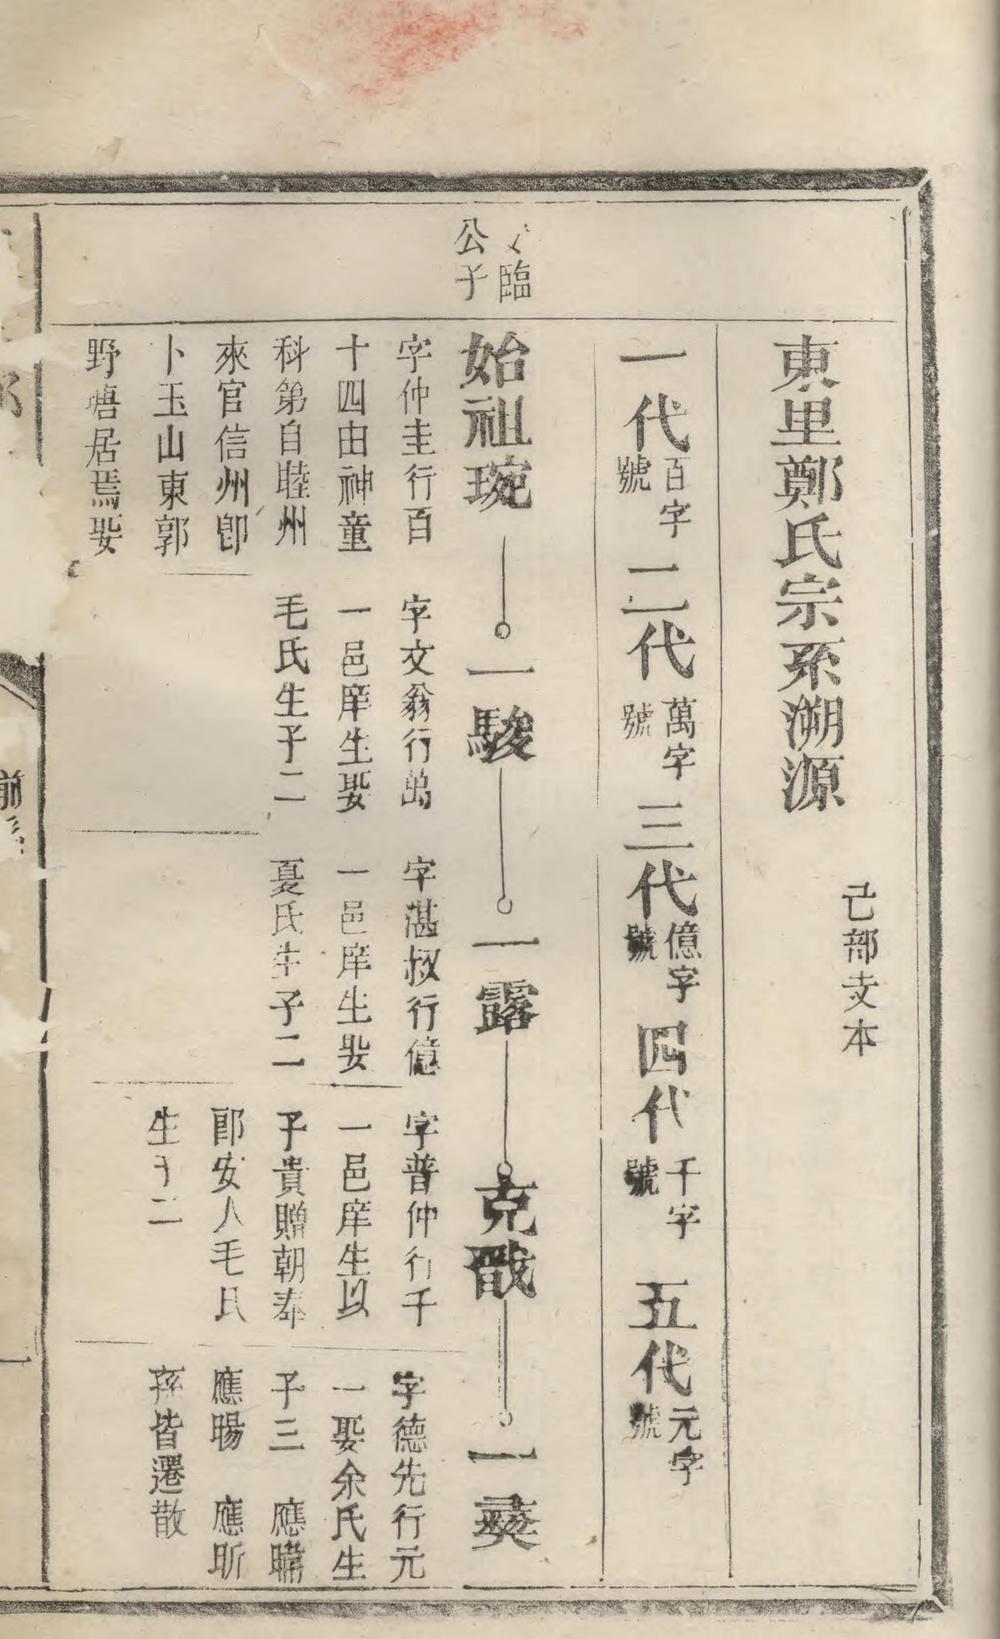 己部支本
東里鄭氏宗系溯源
一代百字號 二代萬字號 三代億字號 四代千字號 五代元字號
臨
公子
始祖琬 一駿 一露 克戩 一彛
字仲圭行百
十四由神童
科第自睦州
來官信州卽
卜玉山東郭
野塘居焉娶
字文翁行萬
一邑庠生娶
毛氏生子二
字湛叔行億
一邑庠生娶
夏氏生子二
字普仲行千
一邑庠生以
子貴贈朝奉
郎安人毛氏
生子二
字德先行元
一娶余氏生
子三 應
應暘 應昕
孫皆遷散
前系
一